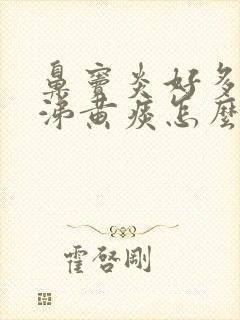 鼻竇炎好多
涕黄痰怎麼
霍啓剛